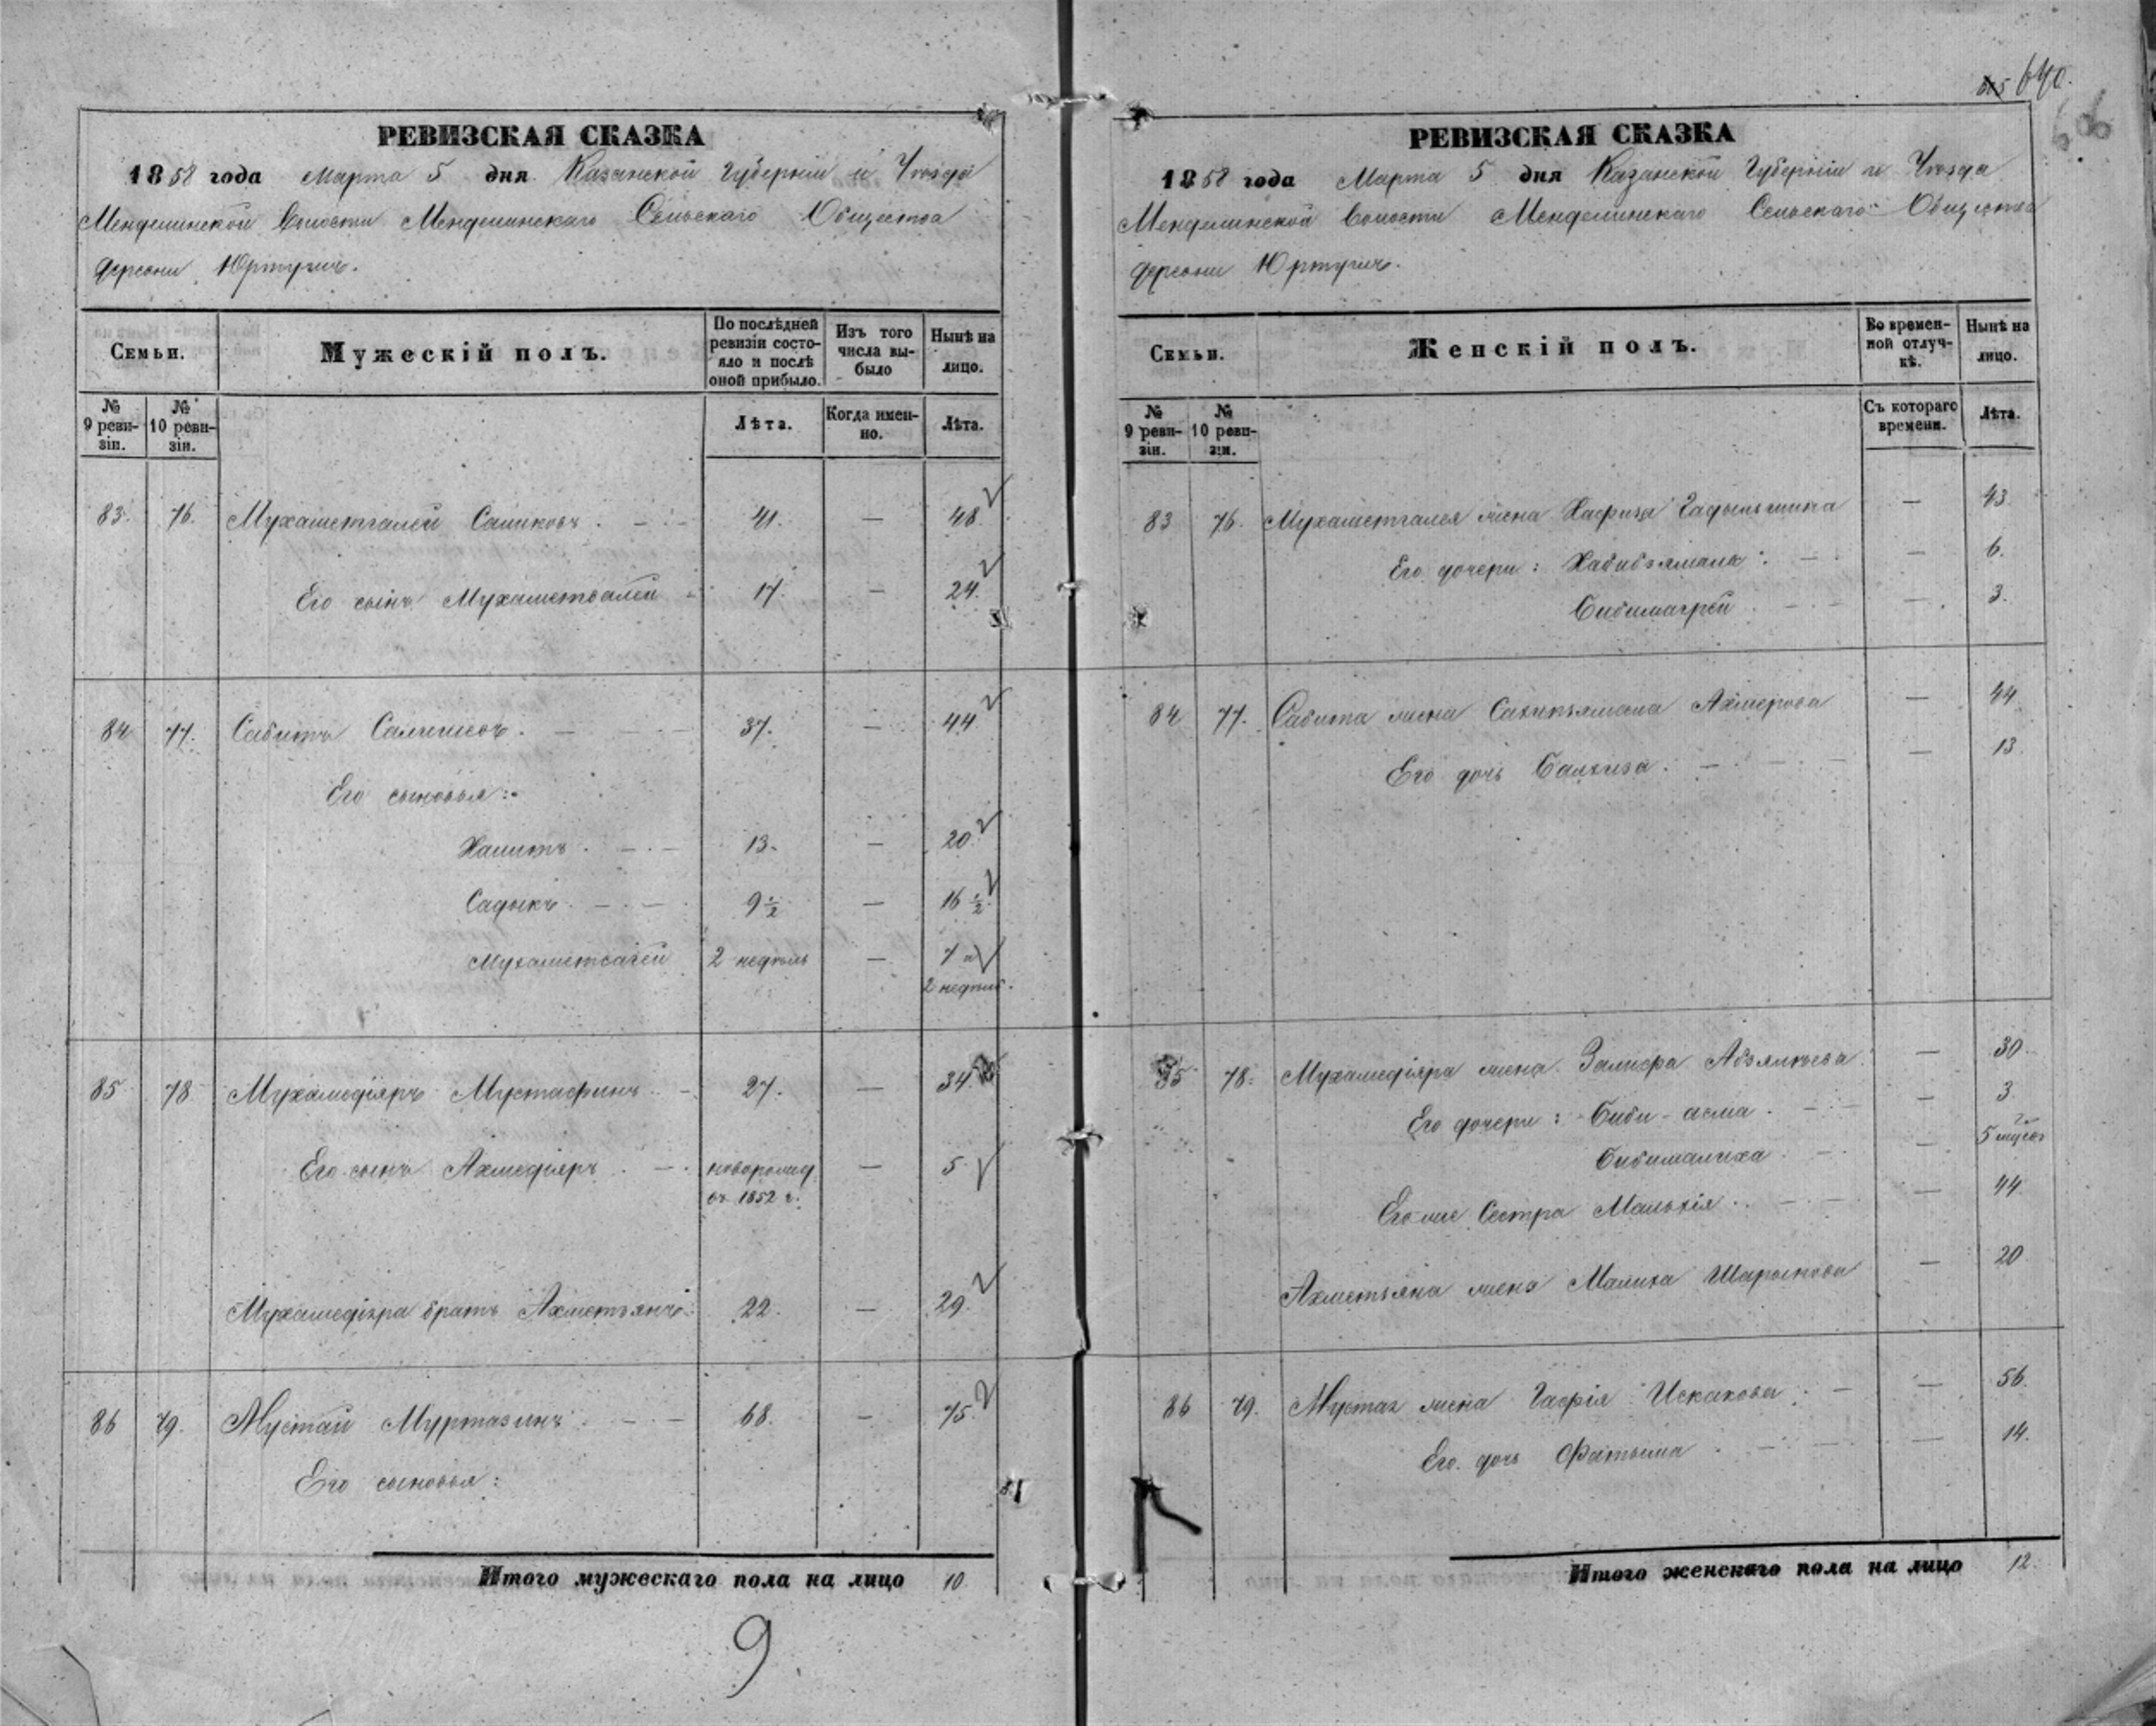 РЕВИЗСКАЯ СКАЗКА
1858 года Марта 5 дня Казанской Губерніи и Уѣзда
Менделинской Волости Менделинскаго Сельскаго Общества
Деревни Юртушъ.
Семьи.
Мужескій полъ.
По послѣдней ревизіи состояло и послѣ оной прибыло.
Изъ того числа выбыло
Нынѣ на лицо.
№ 9 ревизіи.
№ 10 ревизіи.
Лѣта.
Когда именно.
Лѣта.
83. 76. Мухаметгалей Салиховъ. 41. — 48.
Его сынъ Мухаметвалей 17. — 24.
84 77. Сабитъ Салиховъ. 37. — 44
Его сыновья:
Хамитъ. 13. — 20
Садыкъ. 9½ — 16½
Мухаметсагей 2 недѣль — 7 и
2 недѣль.
85 78 Мухамедіяръ Мустафинъ 27. — 34
Его сынъ Ахмедіяръ. новорожд — 5
въ 1852 г.
Мухамедіяра братъ Ахметьянъ 22. — 29.
86 79. Мустай Муртазинъ 68. — 75.
Его сыновья:
Итого мужескаго пола на лицо 10
9
640.
606
РЕВИЗСКАЯ СКАЗКА
1858 года Марта 5 дня Казанской Губерніи и Уѣзда
Менделинской Волости Менделинскаго Сельскаго Общества
Деревни Юртушъ.
Семьи.
Женскій полъ.
Во временной отлучкѣ.
Нынѣ на лицо.
№ 9 ревизіи.
№ 10 ревизіи.
Съ котораго времени.
Лѣта.
83 76. Мухаметгалея жена Хафиза — 43.
Его дочери: Хабибзямала. — 6.
Бибимагрей — 3.
84 77. Сабита жена Сахипьямала Ахмерова — 44
Его дочь Балхиза. — 13
85 78. Мухамедіяра жена — 30
Его дочери: Биби-асма. — 3.
Бибималиха. — 5 мѣсяц
Его же Сестра — 44
Ахметьяна жена Малиха Шарыпова — 20
86 79. Мустая жена Гафія Искакова — 56.
Его дочь Фатыма — 14.
Итого женскаго пола на лицо 12.